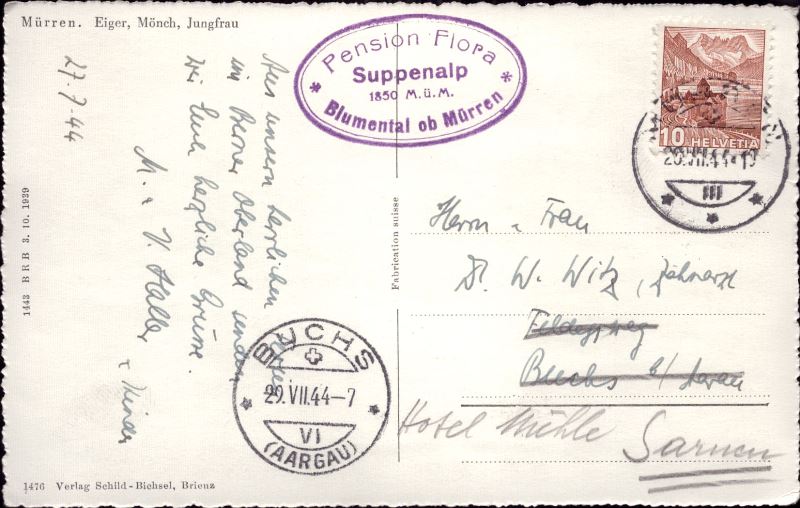 Mürren. Eiger, Mönch, Jungfrau
27.7.44
Aus unsern herrlichen
im Berner Oberland senden
wir Euch herzliche Grüsse.
M. & V. Haller
& Kinder
1443 B R B 3. 10. 1939
1476 Verlag Schild-Bichsel, Brienz
Pension Flora
Suppenalp
1850 M.ü.M.
* Blumental ob Mürren *
Fabrication suisse
10 HELVETIA
29.VII.44-12
III
BUCHS
29.VII.44-7
VI
(AARGAU)
Herrn & Frau
Dr. W. Witz, Zahnarzt
Buchs b/ Aarau
Hotel Mühle
Sarnen